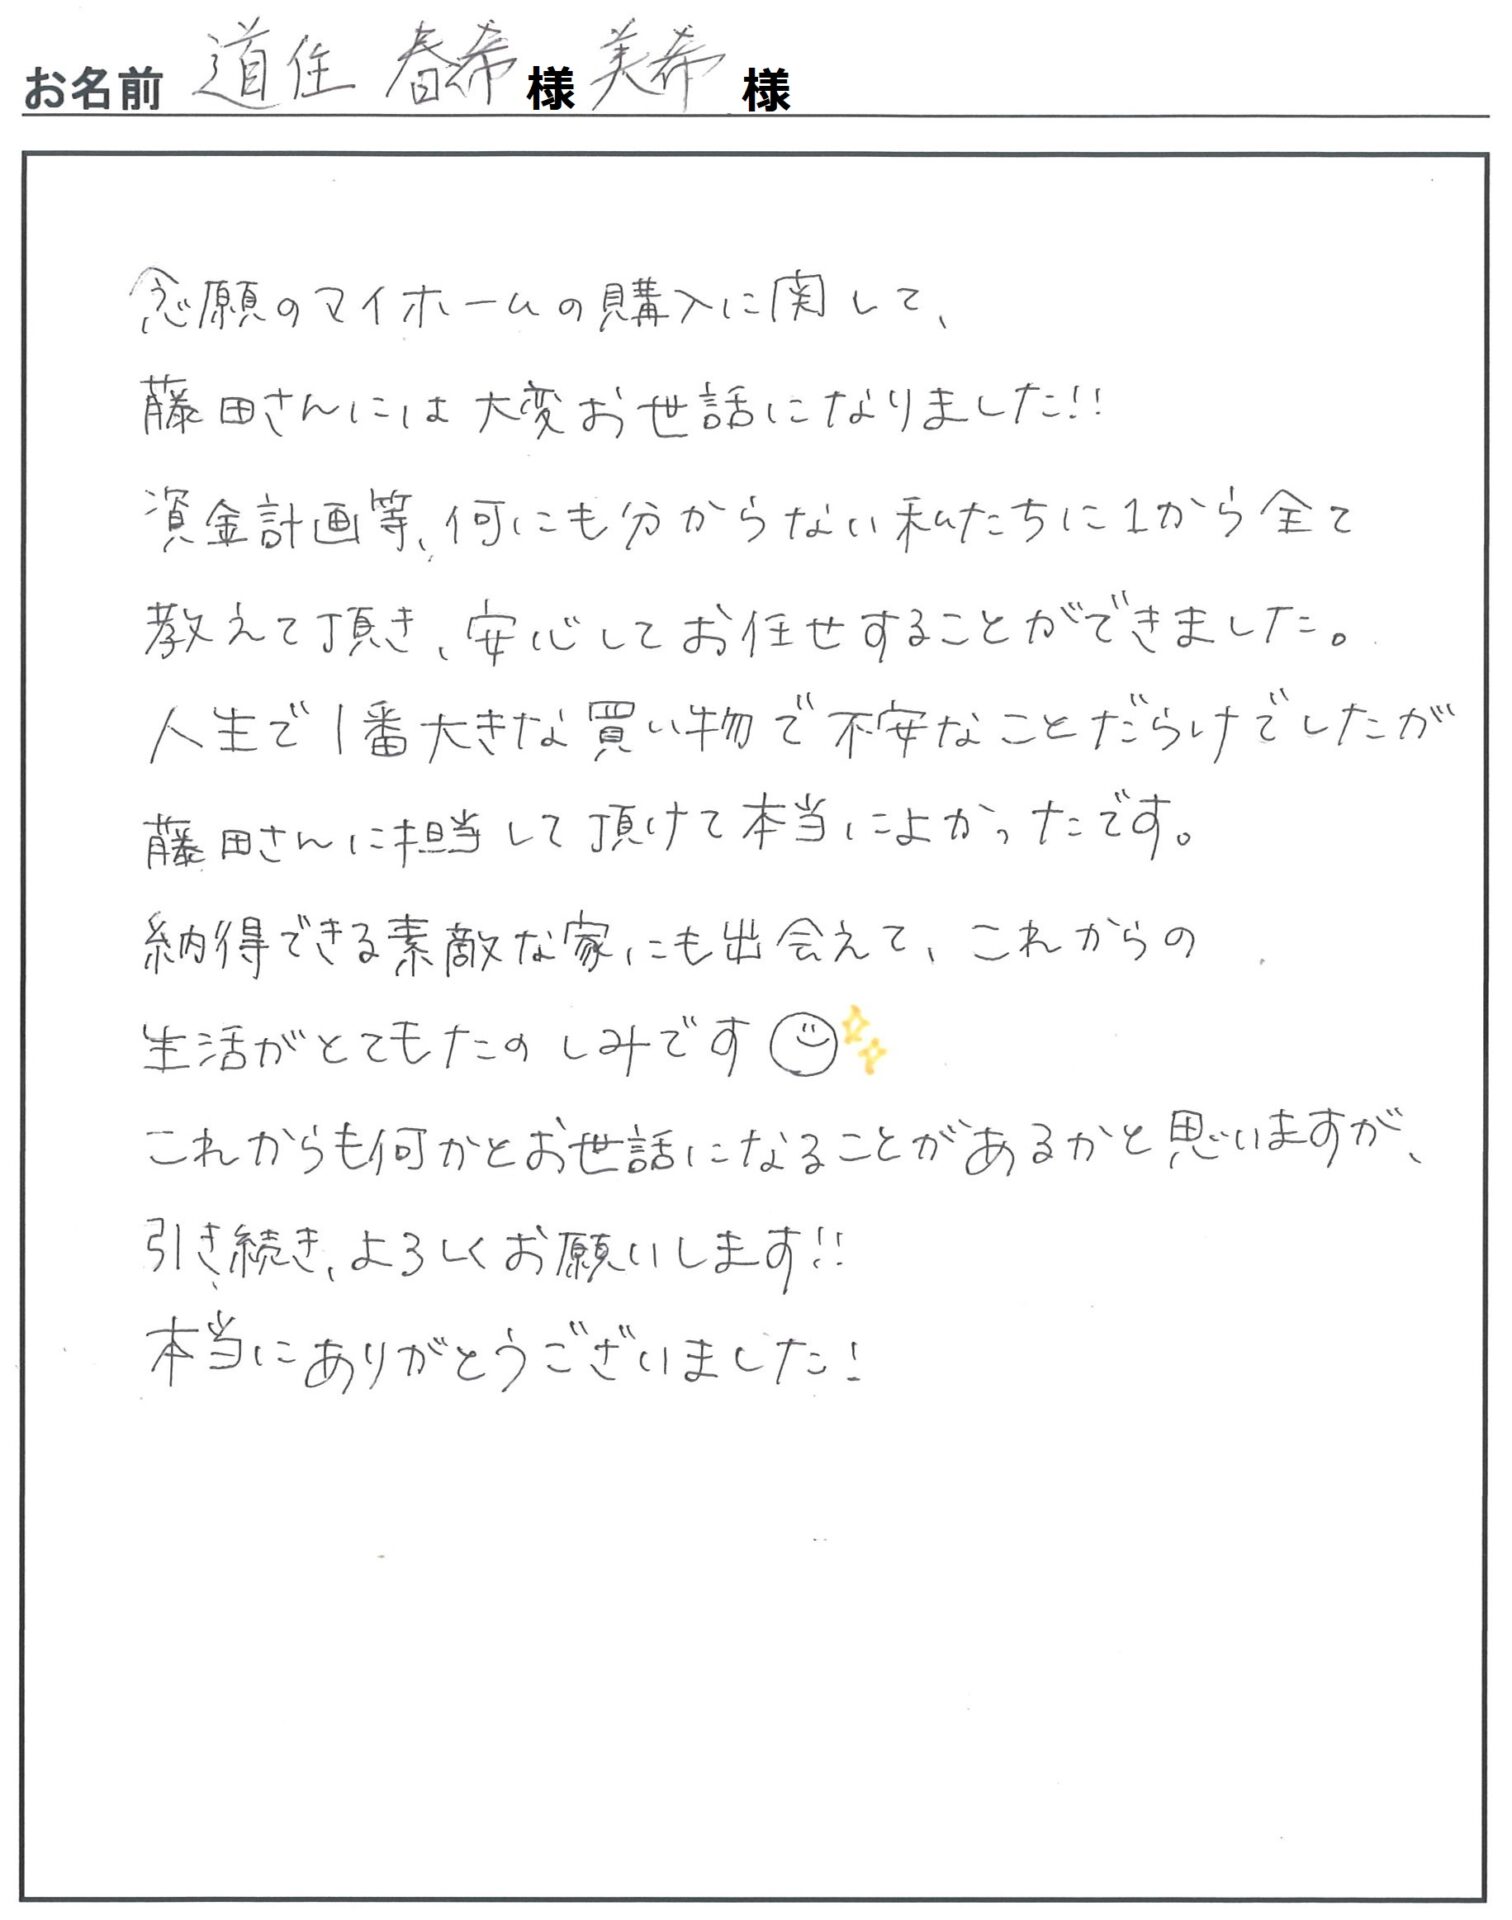 お名前 道住 春希様 美希 様
念願のマイホームの購入に関して、
藤田さんには大変お世話になりました!!
資金計画等、何にも分からない私たちに1から全て
教えて頂き、安心してお任せすることができました。
人生で1番大きな買い物で不安なことだらけでしたが
藤田さんに担当して頂けて本当によかったです。
納得できる素敵な家にも出会えて、これからの
生活がとてもたのしみです
これからも何かとお世話になることがあるかと思いますが、
引き続き、よろしくお願いします!!
本当にありがとうございました!